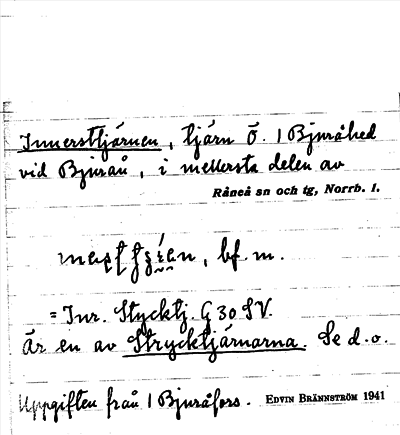 Innersttjärnen, tjärn Ö. 1 Bjuråhed
vid Bjuraå, i mellersta delen av
Råneå sn och tg, Norrb. l.
bf. m.
= Inr. Stycktj. G 30 SV.
Är en av Strycktjärnarna. Se d. o.
Uppgiften från 1 Bjuråfors. EDVIN BRÄNNSTRÖM 1941